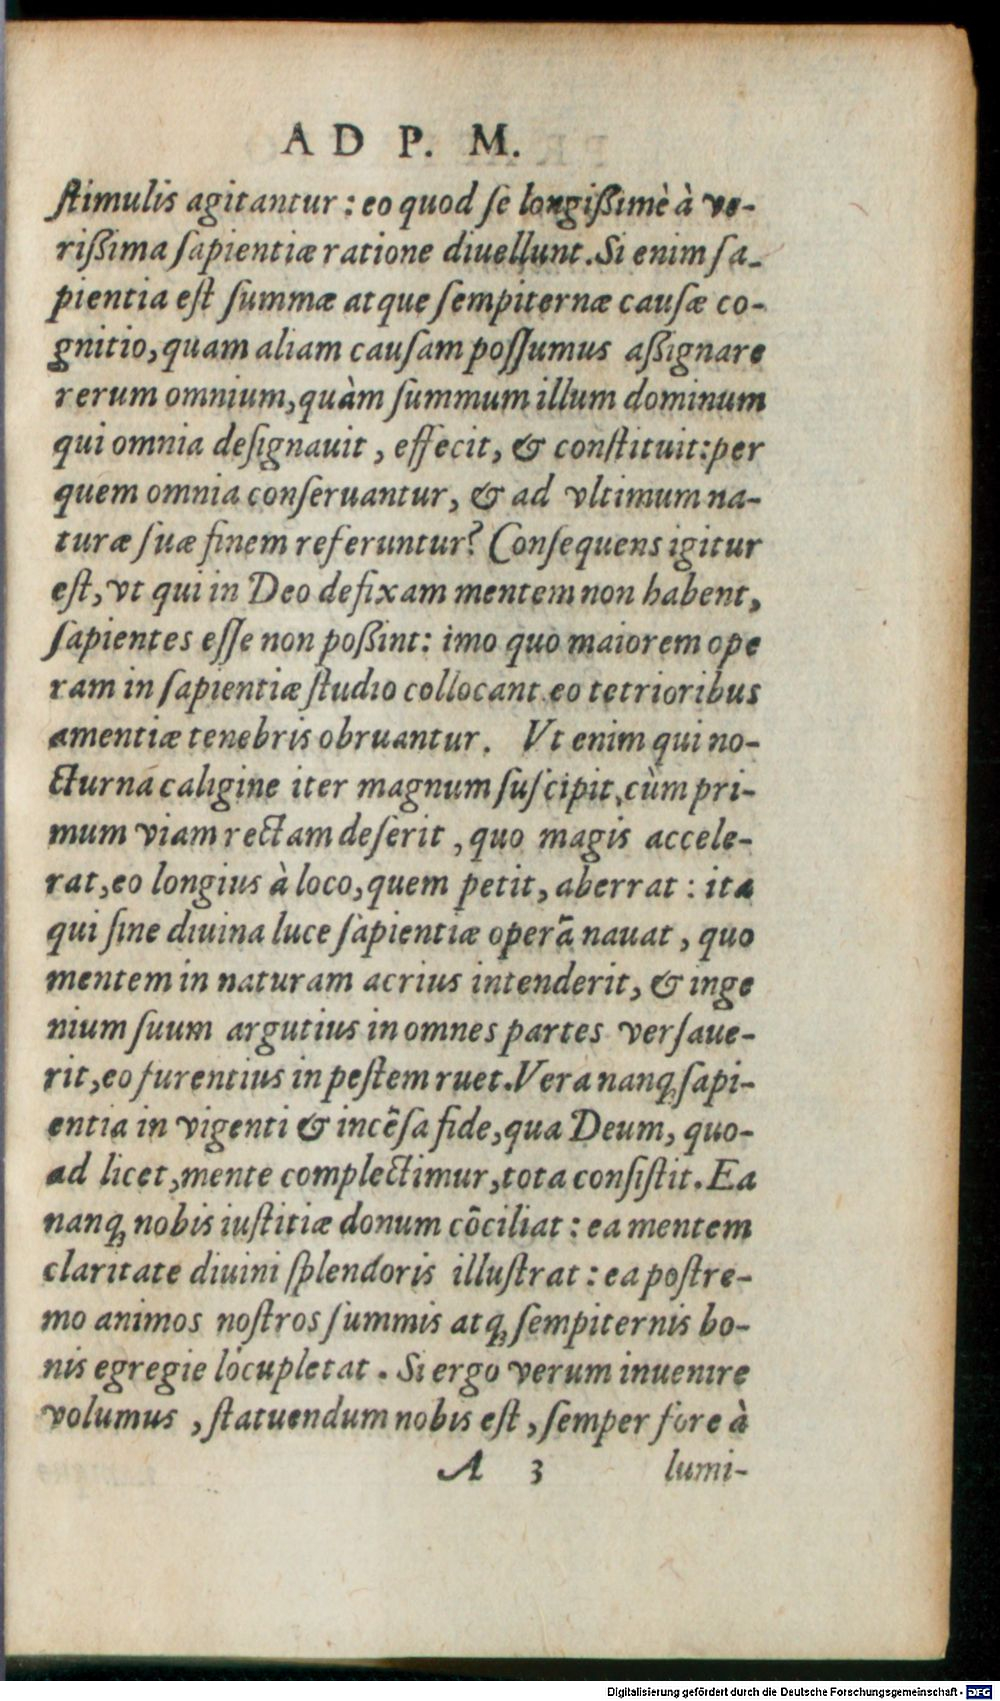 AD P. M.
ſtimulis agitantur : eo quod ſe longißimè à ve-
rißima ſapientiæ ratione diuellunt. Si enim ſa-
pientia eſt ſummæ atque ſempiternæ cauſæ co-
gnitio, quam aliam cauſam poſſumus aßignare
rerum omnium, quàm ſummum illum dominum
qui omnia deſignauit , effecit, & conſtituit: per
quem omnia conſeruantur, & ad vltimum na-
turæ ſuæ finem referuntur? Conſequens igitur
eſt, vt qui in Deo defixam mentem non habent,
ſapientes eſſe non poßint: imo quo maiorem ope
ram in ſapientiæ ſtudio collocant. eo tetrioribus
amentiæ tenebris obruantur. Vt enim qui no-
cturna caligine iter magnum ſuſcipit, cùm pri-
mum viam rectam deſerit , quo magis accele-
rat, eo longius à loco, quem petit, aberrat : ita
qui ſine diuina luce ſapientiæ operã nauat , quo
mentem in naturam acrius intenderit, & inge
nium ſuum argutius in omnes partes verſaue-
rit, eo furentius in peſtem ruet. Vera nanq; ſapi-
entia in vigenti & incẽſa fide, qua Deum, quo-
ad licet, mente complectimur, tota conſiſtit. Ea
nanq; nobis iuſtitiæ donum cõciliat : ea mentem
claritate diuini ſplendoris illuſtrat : ea poſtre-
mo animos noſtros ſummis atq; ſempiternis bo-
nis egregie locupletat . Si ergo verum inuenire
volumus , ſtatuendum nobis eſt , ſemper fore à
A 3 lumi-
Digitalisierung gefördert durch die Deutsche Forschungsgemeinschaft - DFG